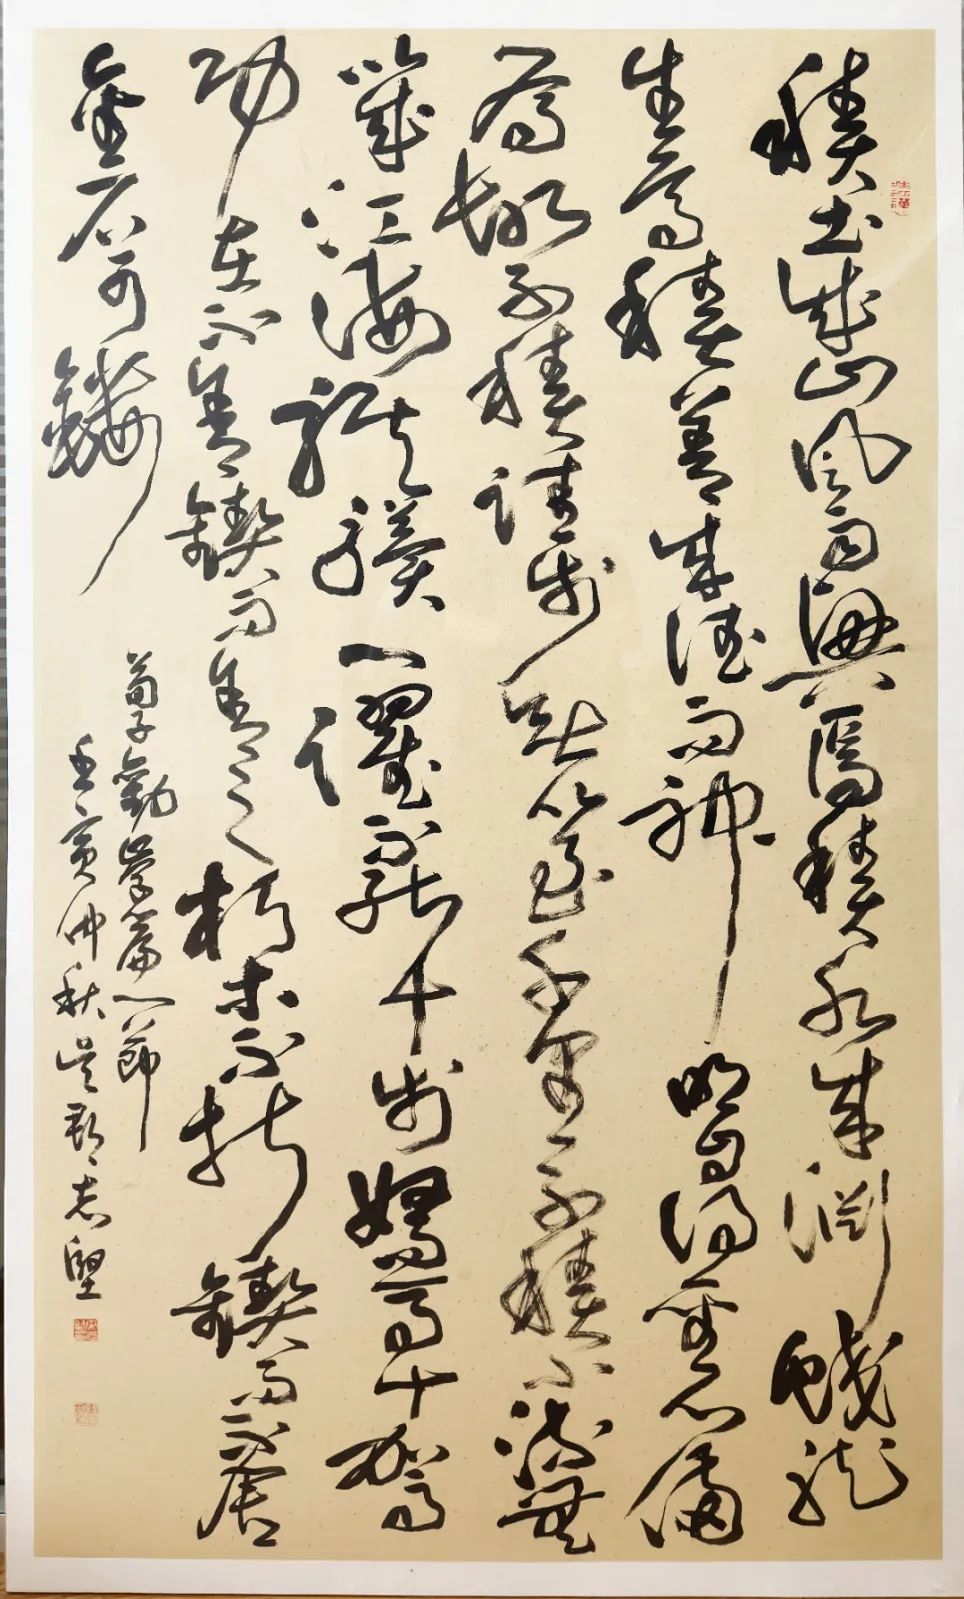 積土成山風雨興焉積水成淵蛟龍
生焉積善成德而神明自得聖心備
焉故不積跬步無以至千里不積小流無
以成江海騏驥一躍不能十步駑馬十駕
功在不舍鍥而舍之朽木不折鍥而不舍
金石可鏤
荀子勸學篇一節
壬寅仲秋吳郡志堅